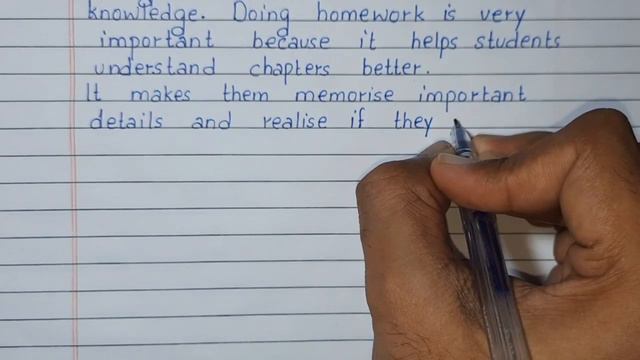 knowledge. Doing homework is very
important because it helps students
understand chapters better.
It makes them memorise important
details and realise if they